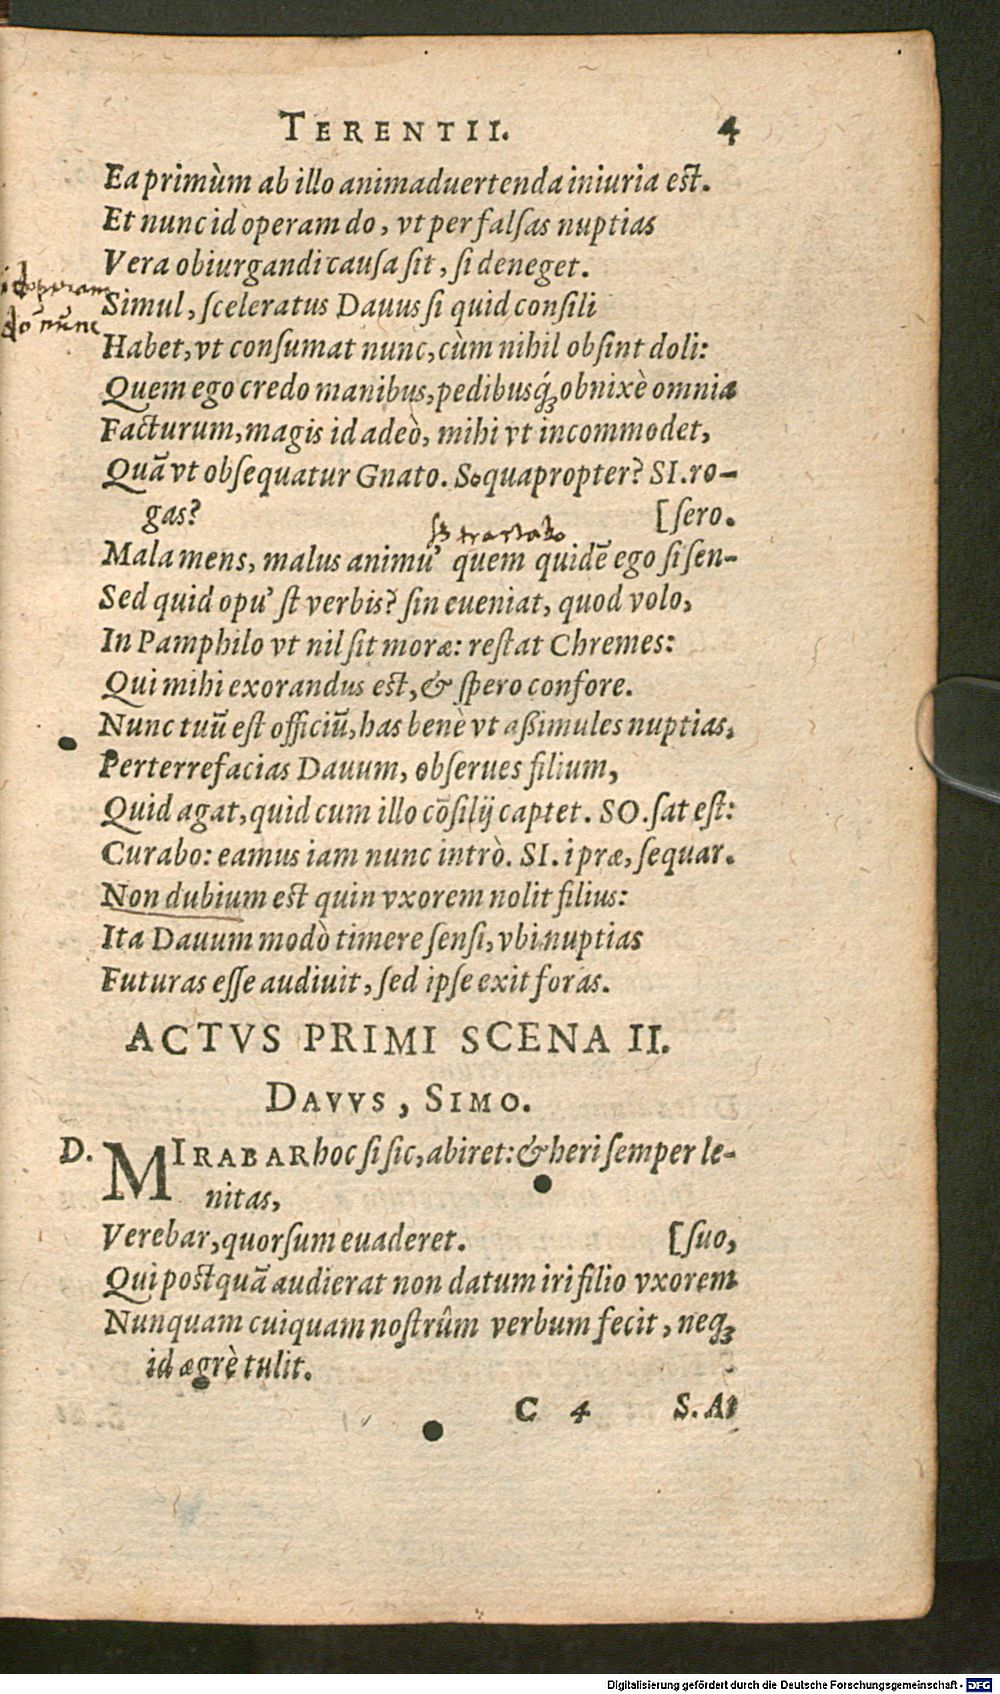 TERENTII. 4
Ea primùm ab illo animaduertenda iniuria est.
Et nunc id operam do, vt per falſas nuptias
Vera obiurgandi cauſa ſit, ſi deneget.
id operam
Simul, ſceleratus Dauus ſi quid conſili
do nunc
Habet, vt conſumat nunc, cùm nihil obſint doli:
Quem ego credo manibus, pedibusq́ꝫ obnixè omnia
Facturum, magis id adeò, mihi vt incommodet,
Quā vt obſequatur Gnato. So quapropter? SI. ro-
gas? [ſero.
tractabo
Mala mens, malus animu' quem quidē ego ſi ſen-
Sed quid opu' ſt verbis? ſin eueniat, quod volo,
In Pamphilo vt nil ſit moræ: reſtat Chremes:
Qui mihi exorandus est, & ſpero confore.
Nunc tuū eſt officiū, has benè vt aßimules nuptias,
Perterrefacias Dauum, obſerues filium,
Quid agat, quid cum illo cōſilij captet. SO. ſat eſt:
Curabo: eamus iam nunc intrò. SI. i præ, ſequar.
Non dubium est quin vxorem nolit filius:
Ita Dauum modò timere ſenſi, vbi nuptias
Futuras eſſe audiuit, ſed ipſe exit foras.
ACTVS PRIMI SCENA II.
DAVVS, SIMO.
D. MIRABAR hoc ſi ſic, abiret: & heri ſemper le-
nitas,
Verebar, quorſum euaderet. [ſuo,
Qui postquā audierat non datum iri filio vxorem
Nunquam cuiquam noſtrûm verbum fecit, neqꝫ
id ægrè tulit.
C 4 S. At
Digitalisierung gefördert durch die Deutsche Forschungsgemeinschaft - DFG